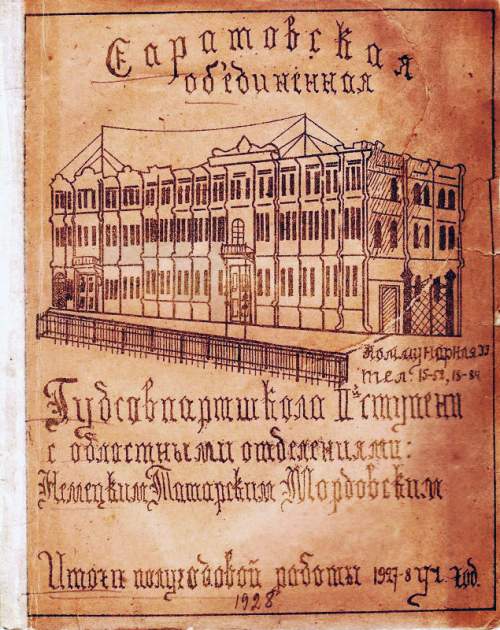 Саратовская
об'единенная
Коммунарная 33
тел: 15-52, 18-84
Губсовпартшкола IIй ступени
с областными отделениями:
Немецким Татарским Мордовским
Итоги полугодовой работы 1927-8 уч. год.
1928